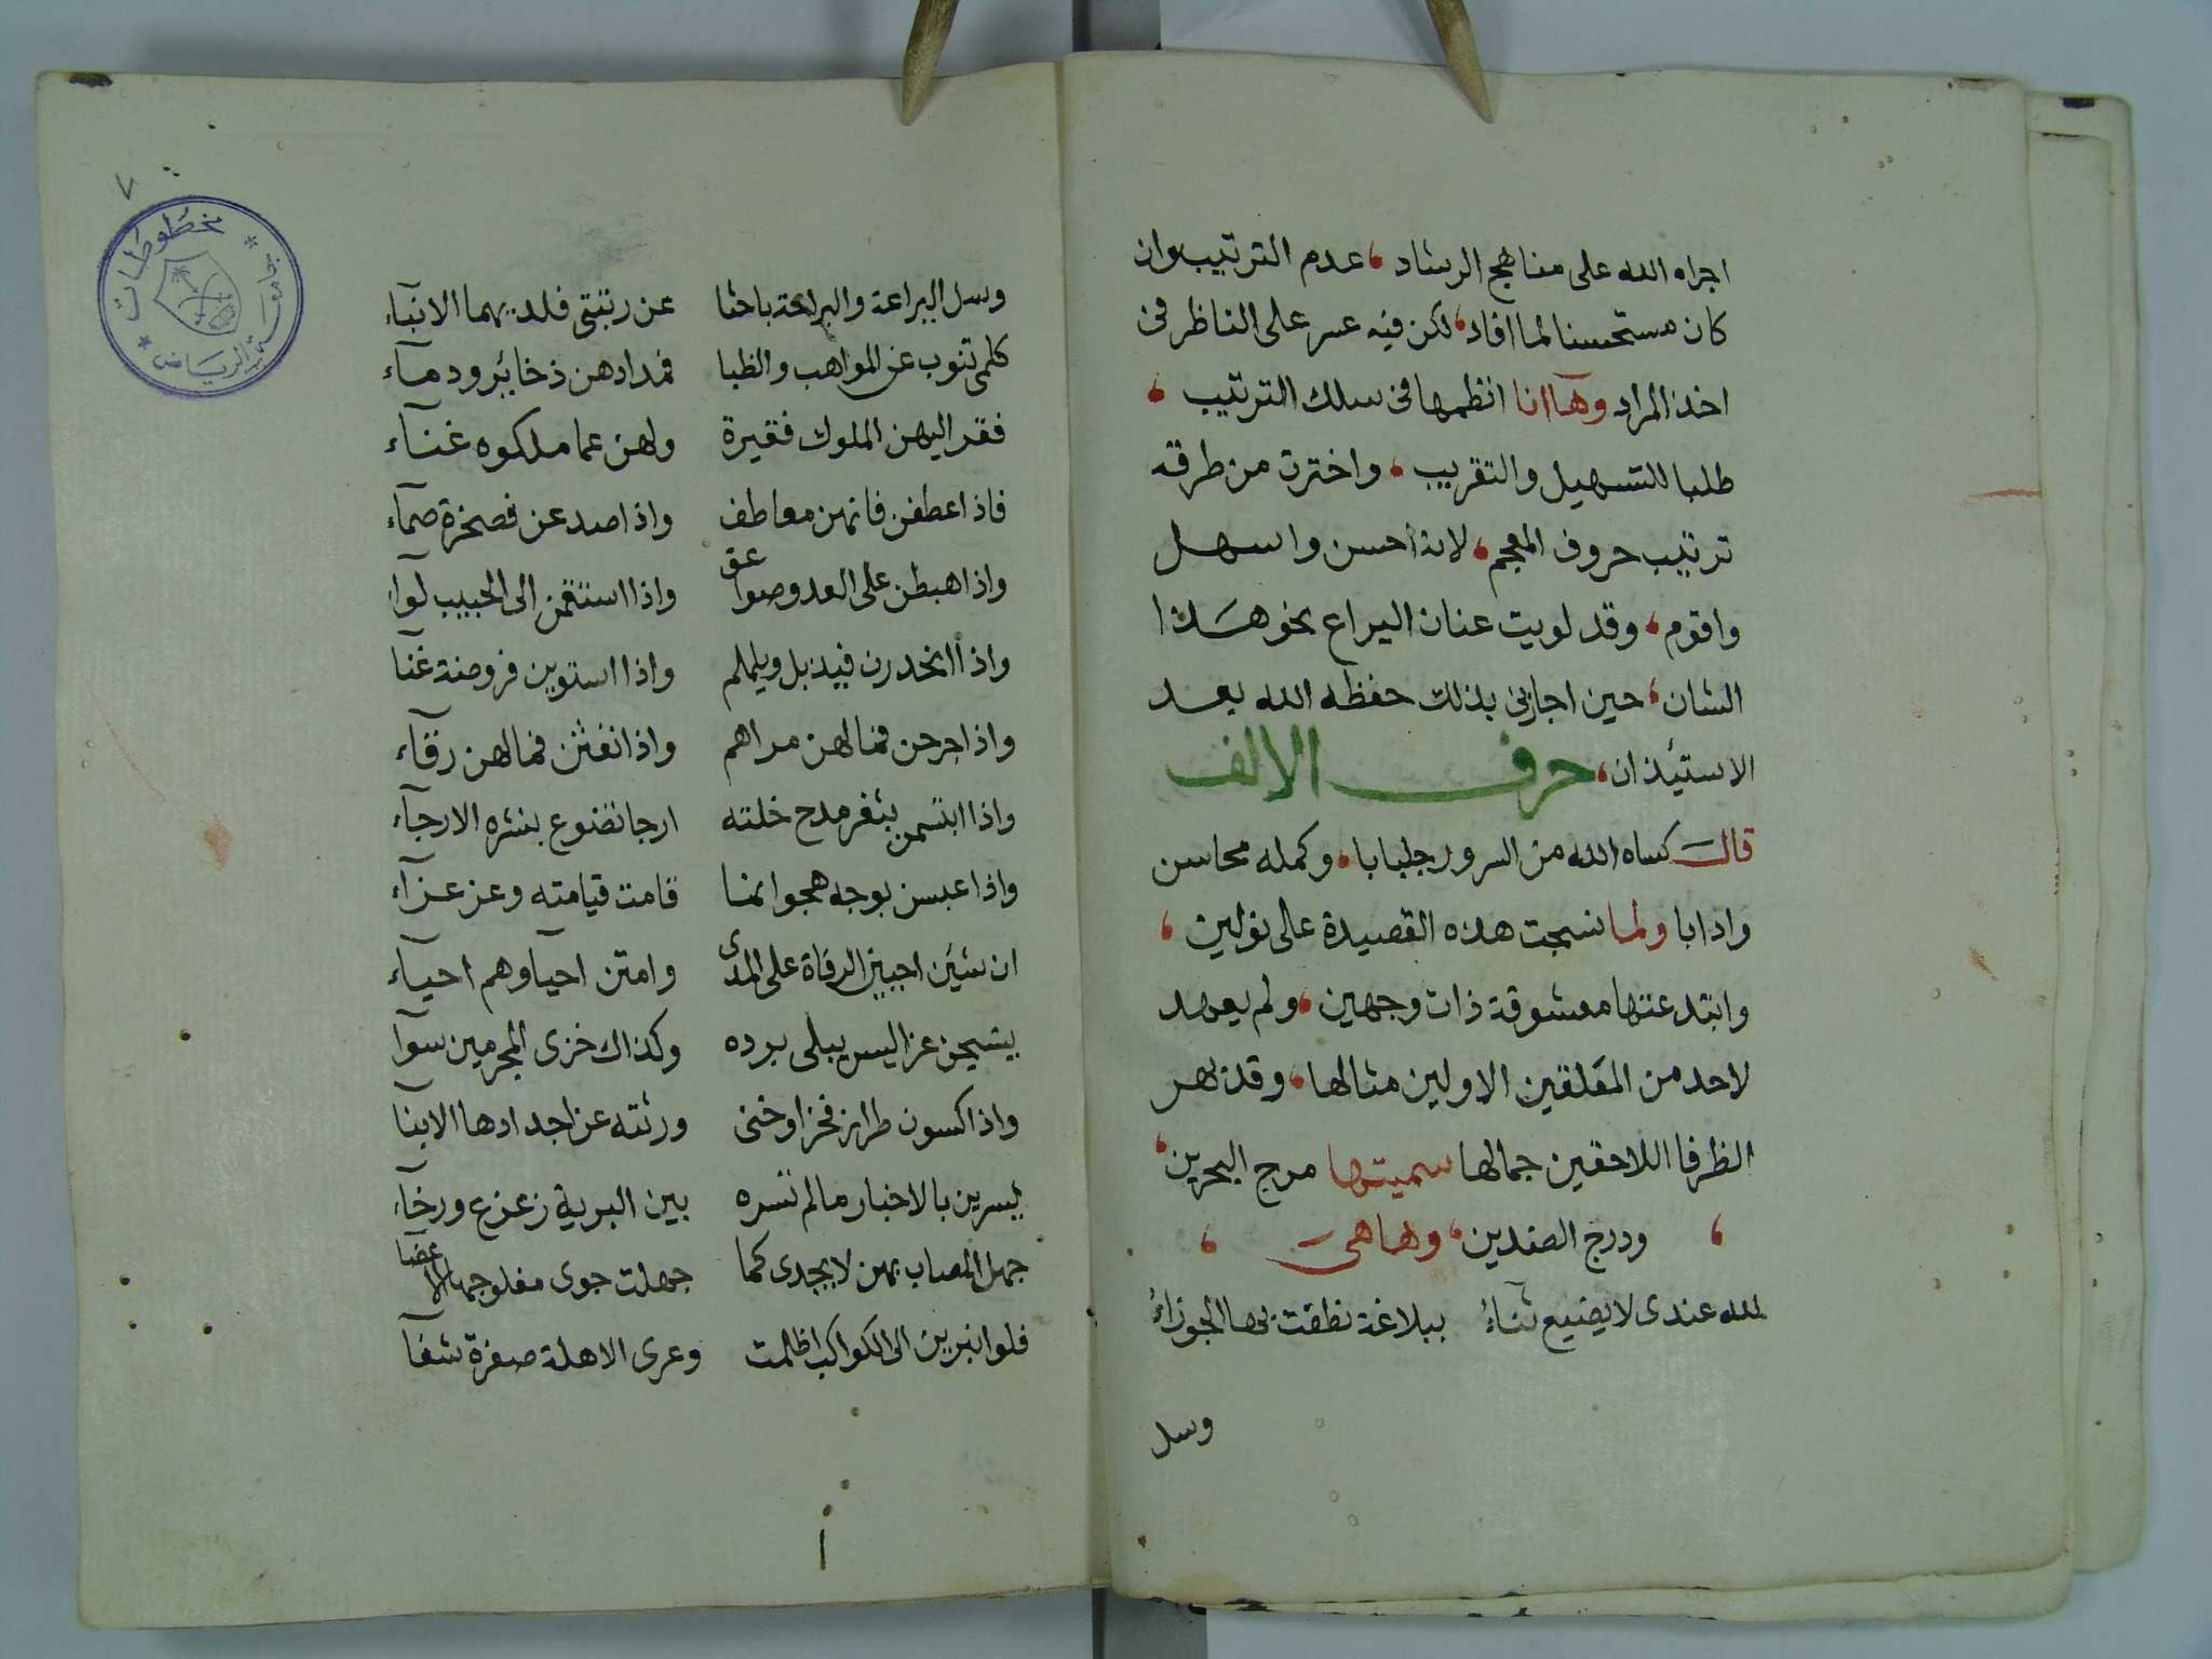 اجراه الله على مناهج الرشاد، عدم الترتيب وان
كان مستحسنا لما افاد، لكن فيه عسر على الناظر فى
اخذ المراد وها انا انظمها فى سلك الترتيب،
طلبا للتسهيل والتقريب، واخترت من طرقه
ترتيب حروف المعجم، لانه احسن واسهل
واقوم، وقد لويت عنان اليراع نحو هذا
الشان، حين اجازنى بذلك حفظه الله بعد
الاستيذان، حرف الالف
قال كساه الله من السرور جلبابا، وكمله محاسن
وادابا ولما نسجت هذه القصيدة على نولين،
وابتدعتها معشوقة ذات وجهين، ولم يعهد
لاحد من المفلقين الاولين مثالها، وقد بهر
الظرفا اللاحقين جمالها سميتها مرج البحرين،
، ودرج الصدين، وها هى ،
لله عندى لا يضيع ثناءُ ببلاغة نظقت بها الجوزاءُ
وسل
٧
مخطوطات
جامعة الرياض
وسل اليراعة والبراعة باحثا عن رتبتى فلديهما الانبآء
كلمى تنوب عن المواهب والظبا فمدادهن ذخائر ودمآء
فقر اليهن الملوك فقيرة ولهن عما ملكوه غنآء
فاذا عطفن فانهن معاطف واذا صددن فصخرة صمآء
واذا هبطن على العدو صواعق واذا استقمن الى الحبيب لوآء
واذا انحدرن فيذبل ويلملم واذا استوين فروضة غنا
واذا جرحن فما لهن مراهم واذا نفثن فما لهن رقآء
واذا ابتسمن بثغر مدح خلته ارجا تضوع بنشره الارجآء
واذا عبسن بوجه هجو انما قامت قيامته وعز عزآء
ان شئن احيين الرفاة على المدى وامتن احيا وهم احيآء
ينسجن عزا ليس يبلى برده وكذاك خزى المجرمين سوآ
واذا كسون طراز فخر او خنى ورثته عن اجدادها الابنا
يسرين بالاخبار ما لم تسره بين البرية زعزع ورخآء
جهل المصاب بهن لا يجدى كما جهلت جوى مفلوجها الاعضا
فلو انبرين الى الكواكب اظلمت وعرى الاهلة صفرة شفآ
ا